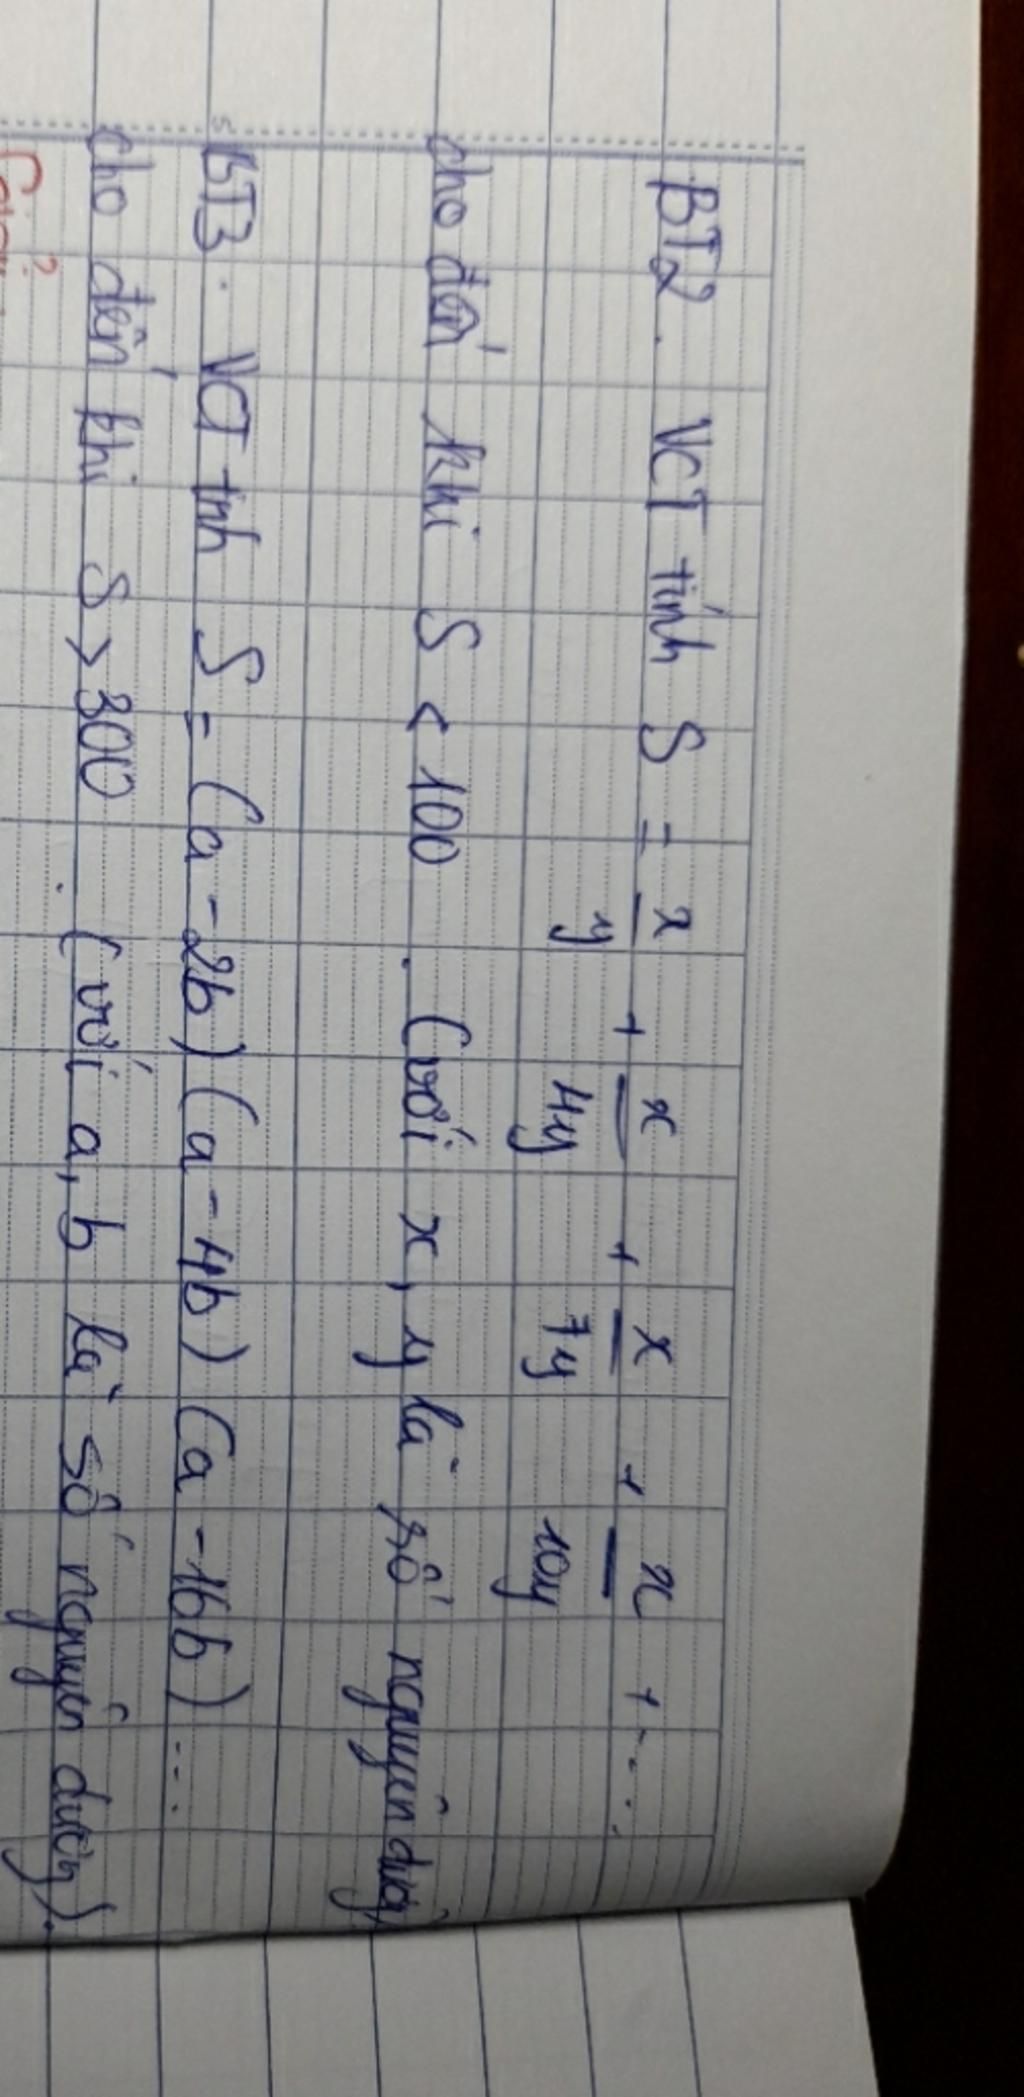 BT2. VCT tính S = x/y + x/4y + x/7y + x/10y + ...
cho đến khi S < 100. (với x, y là số nguyên dương
BT3. VCT tính S = (a - 2b)(a - 4b)(a - 16b)...
cho đến khi S > 300. (với a, b là số nguyên dương).